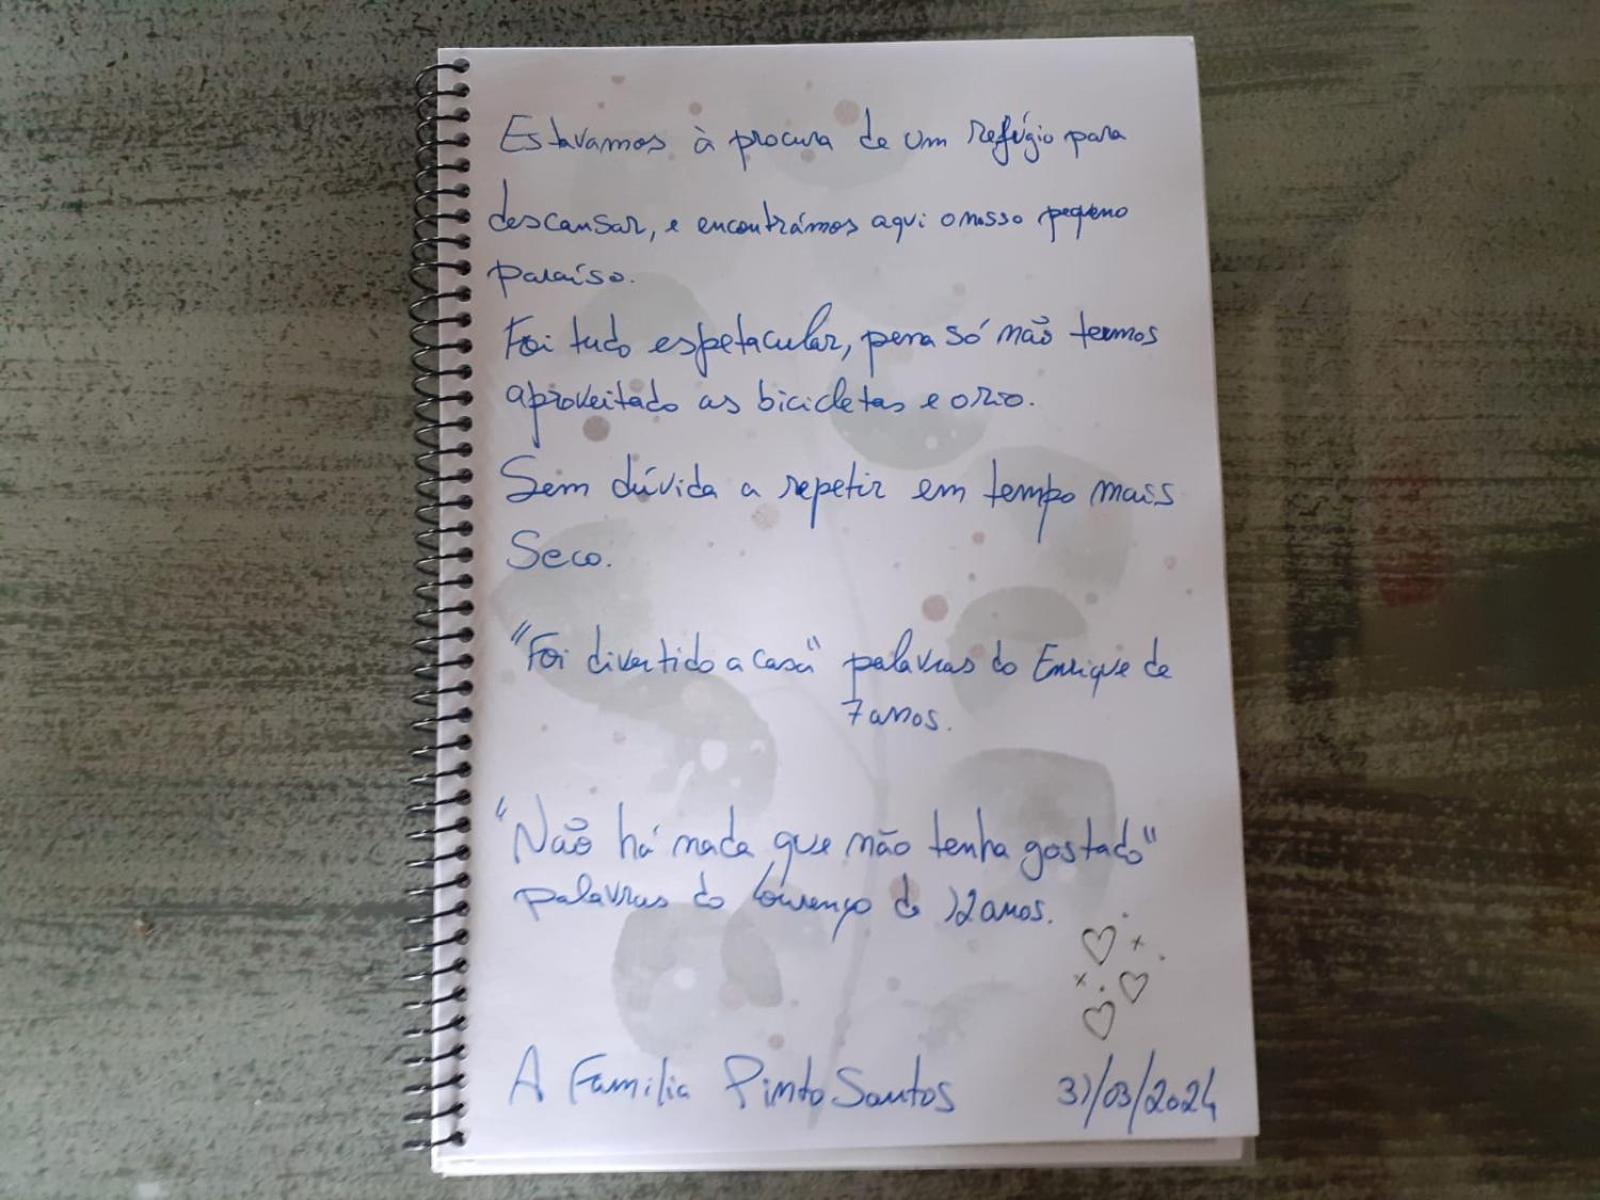 Estavamos à procura de um refúgio para
descansar, e encontrámos aqui o nosso pequeno
paraíso.
Foi tudo espetacular, pena só não termos
aproveitado as bicicletas e o rio.
Sem dúvida a repetir em tempo mais
Seco.
"Foi divertido a casa" palavras do Enrique de
7 anos.
"Não há nada que não tenha gostado"
palavras do Lourenço de 12 anos.
A Familia Pinto Santos 31/03/2024